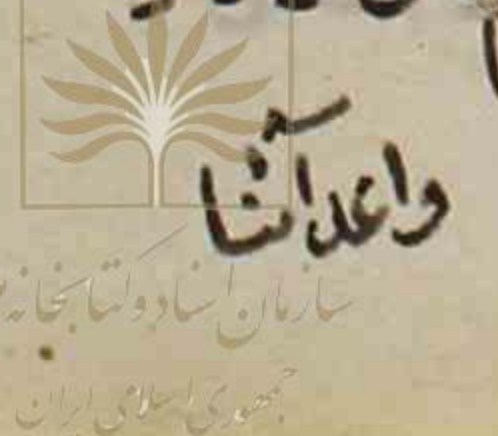 واعدائنا
سازمان اسناد و کتابخانه
جمهوری اسلامی ایران